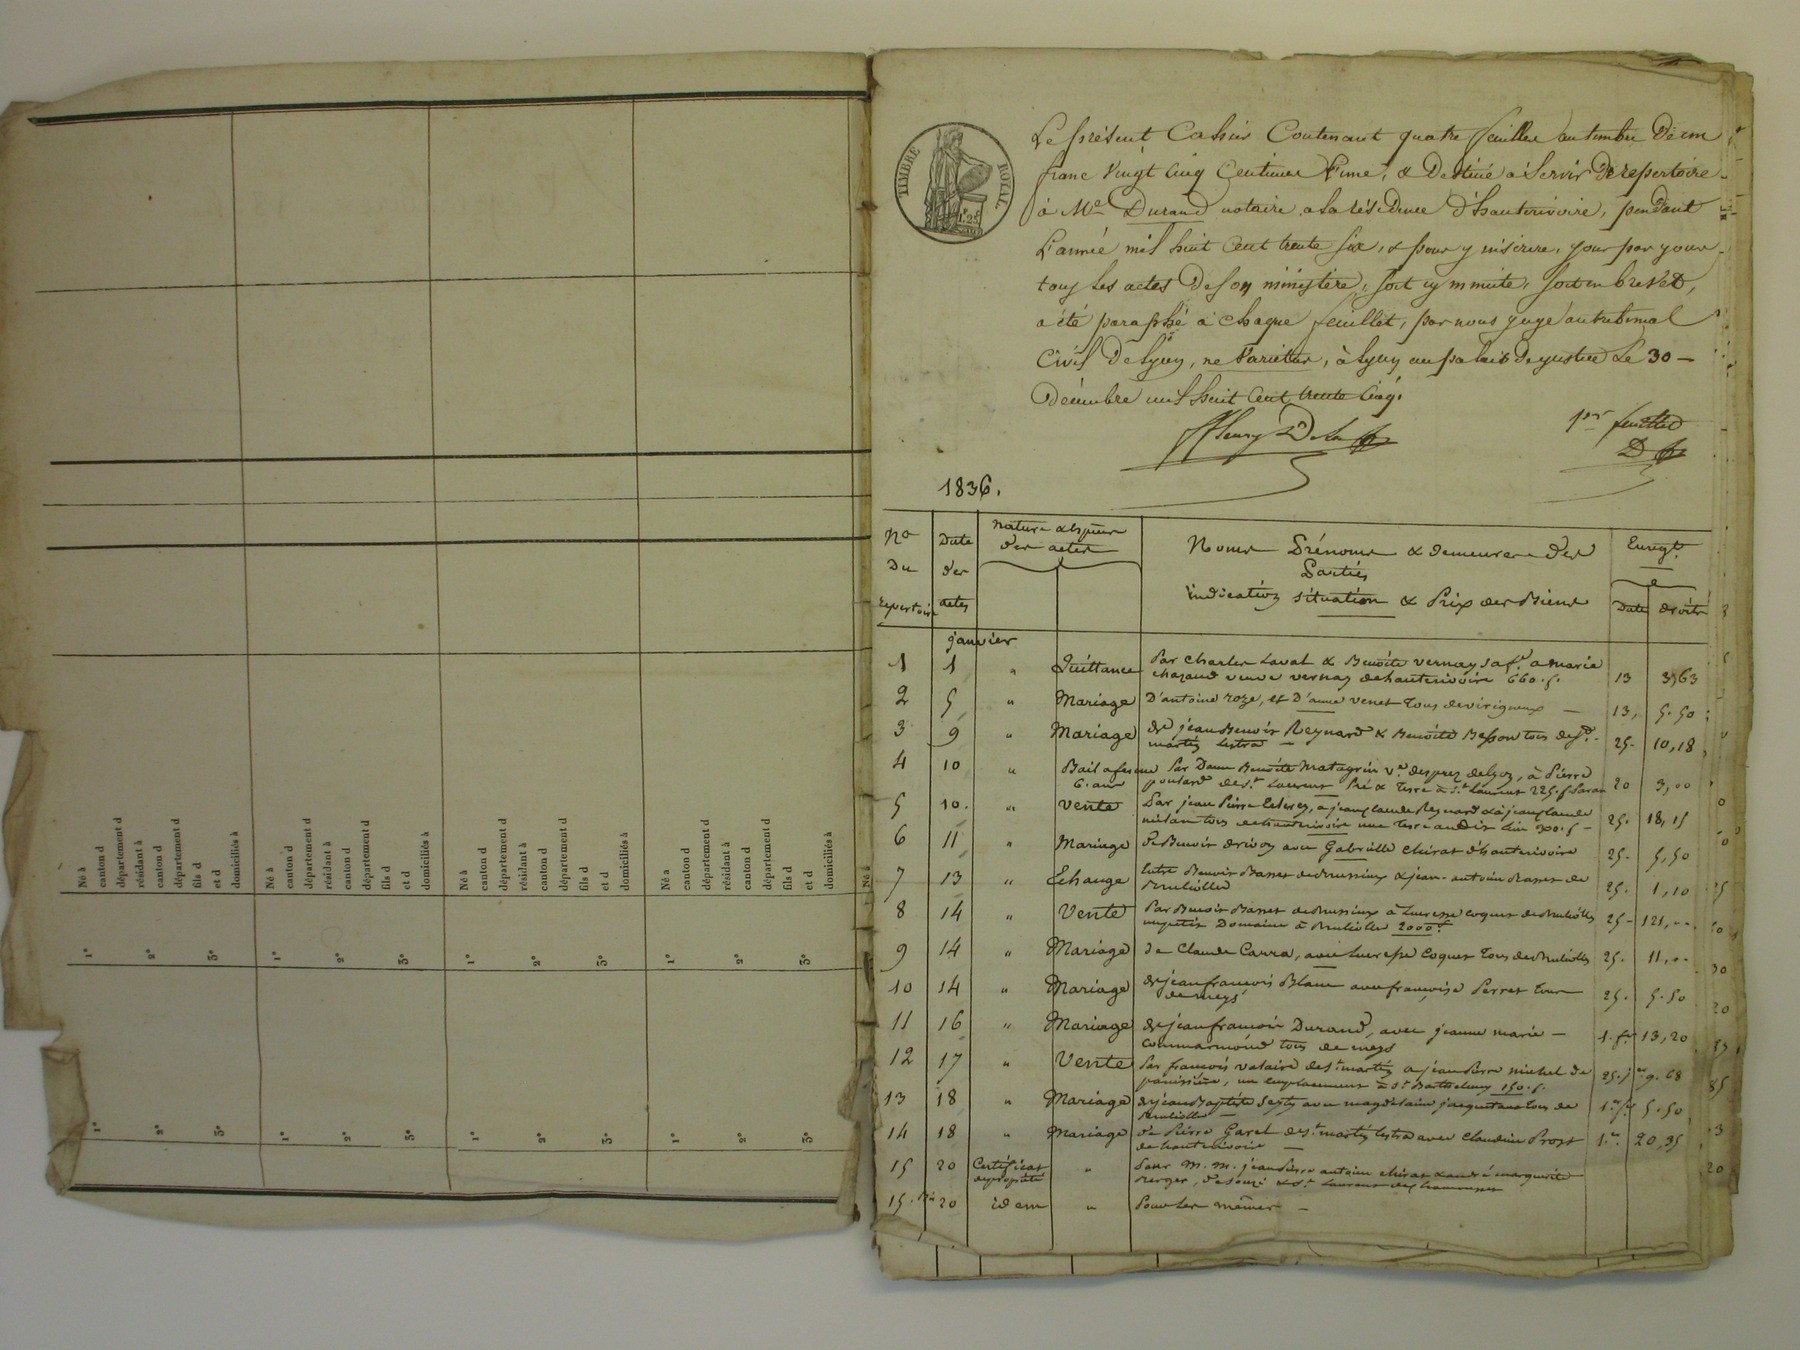 Né à
canton d
département d
résidant à
canton d
département d
fils d
et d
domiciliés à
Né à
canton d
département d
résidant à
canton d
département d
fils d
et d
domiciliés à
Né à
canton d
département d
résidant à
canton d
département d
fils d
et d
domiciliés à
Né à
canton d
département d
résidant à
canton d
département d
fils d
et d
domiciliés à
Né à
1º 2º 3º 1º 2º 3º 1º 2º 3º 1º 2º 3º
1º 2º 3º 1º 2º 3º 1º 2º 3º 1º 2º 3º
TIMBRE ROYAL
1 F 25
Le présent Cahier Contenant quatre feuilles au timbre de un
franc vingt cinq centimes & destiné à servir de repertoire
à Me Durand notaire a la résidence d'hauterivoire, pendant
L'année mil huit cent trente six, & pour y inscrire, jour par jour
tous les actes de son ministère, soit en minute, soit en brevet,
a été paraphé à chaque feuillet, par nous juge au tribunal
Civil de Lyon, ne varietur, à Lyon au palais de justice Le 30 —
Décembre mil huit cent trente cinq.
1er feuillet
1836.
No Du repertoire
Date des actes
nature & espèces des actes
Noms Prénoms & demeures des Parties
indication situation & Prix des Biens
Enregt.
Date droits
janvier
1 1 " Quittance Par Charles Laval & Benoite vernay sa fe. a marie
chazaud veuve vernay de hauterivoire 660.f. 13 3,63
2 5 " Mariage D'antoine roze, et D'anne venet tous de virigneux — 13, 5.50
3 9 " Mariage de jean Benoit Reynard & Benoite Besson tous de st.
martin lestra — 25- 10,18
4 10 " Bail a ferme Par Dame Benoite Matagrin ve. desprez de Lyon, à Pierre
6. ans poulard de st. Laurent Pré & Terre à st. Laurent 225.f 20 3,00
5 10. " Vente Par jean Pierre a jean claude Reynard & à jean claude
tous de hauterivoire une terre au dit lieu 300.f — 25. 18,15
6 11 " Mariage de Benoit drivon avec Gabrielle chirat d'hauterivoire 25- 5,50
7 13 " Echange Entre Benoit Basset de Brussieux & jean-antoine Basset de
Brulliolles 25. 1,10
8 14 " Vente Par Benoit Basset de Brussieux à Lucresse coquet de Brulliolles
un petit Domaine à Brulliolles 2000f 25- 121,"
9 14 " Mariage de Claude Carra, avec Lucresse Coquet tous de Brulliolles 25. 11,"
10 14 " Mariage de jean francois Blanc avec françoise Perret tous
de meys 25. 5.50
11 16 " Mariage de jean francois Durand, avec jeanne marie —
commarmond tous de meys 1.fr 13,20
12 17 " Vente Par francois valaire de st. martin a jean Pierre michel de
panissière, un emplacement à st. Barthelemy 150.f. 25.jer 9.68
13 18 " Mariage de jean Baptiste avec magdelaine tous de
Brulliolles — 1er.fr 5.50
14 18 " Mariage de Pierre Garel de st. martin lestra avec Claudine Prost
de hauterivoire — 1er. 20,35
15 20 Certificat de propriété " Pour M. M. jean Pierre antoine chirat & andré marguerite
& st. Laurent de chamousset
15. bis 20 idem " Pour les mêmes —